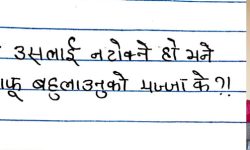 उसलाई नटोक्ने हो भने
फू बहुलाउनुको मज्जा के?!